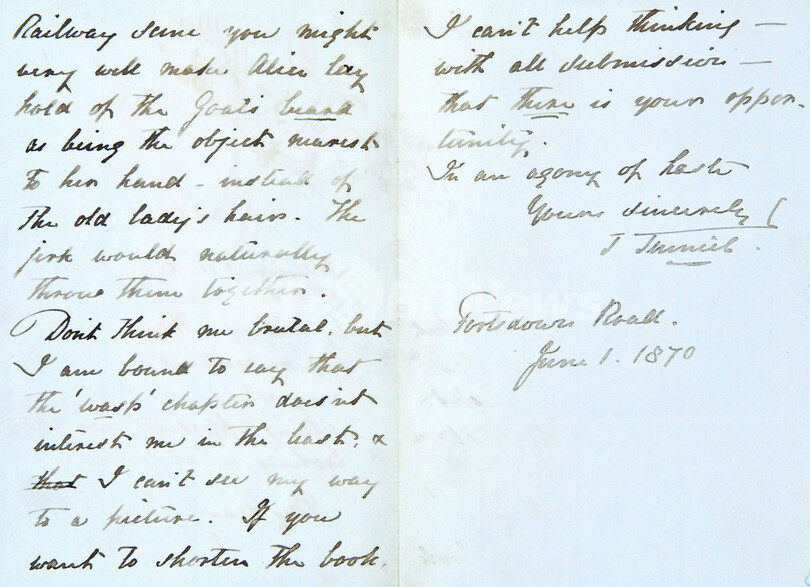 Railway scene you might
very well make Alice lay
hold of the Goat's beard
as being the object nearest
to her hand - instead of
the old lady's hair. The
jerk would naturally
throw them together.
Don't think me brutal, but
I am bound to say that
the 'wasp' chapter does'nt
interest me in the least, &
that I can't see my way
to a picture. If you
want to shorten the book,
I can't help thinking -
with all submission -
that there is your oppor-
tunity.
In an agony of haste
Yours sincerely
J Tenniel.
Portsdown Road.
June 1. 1870